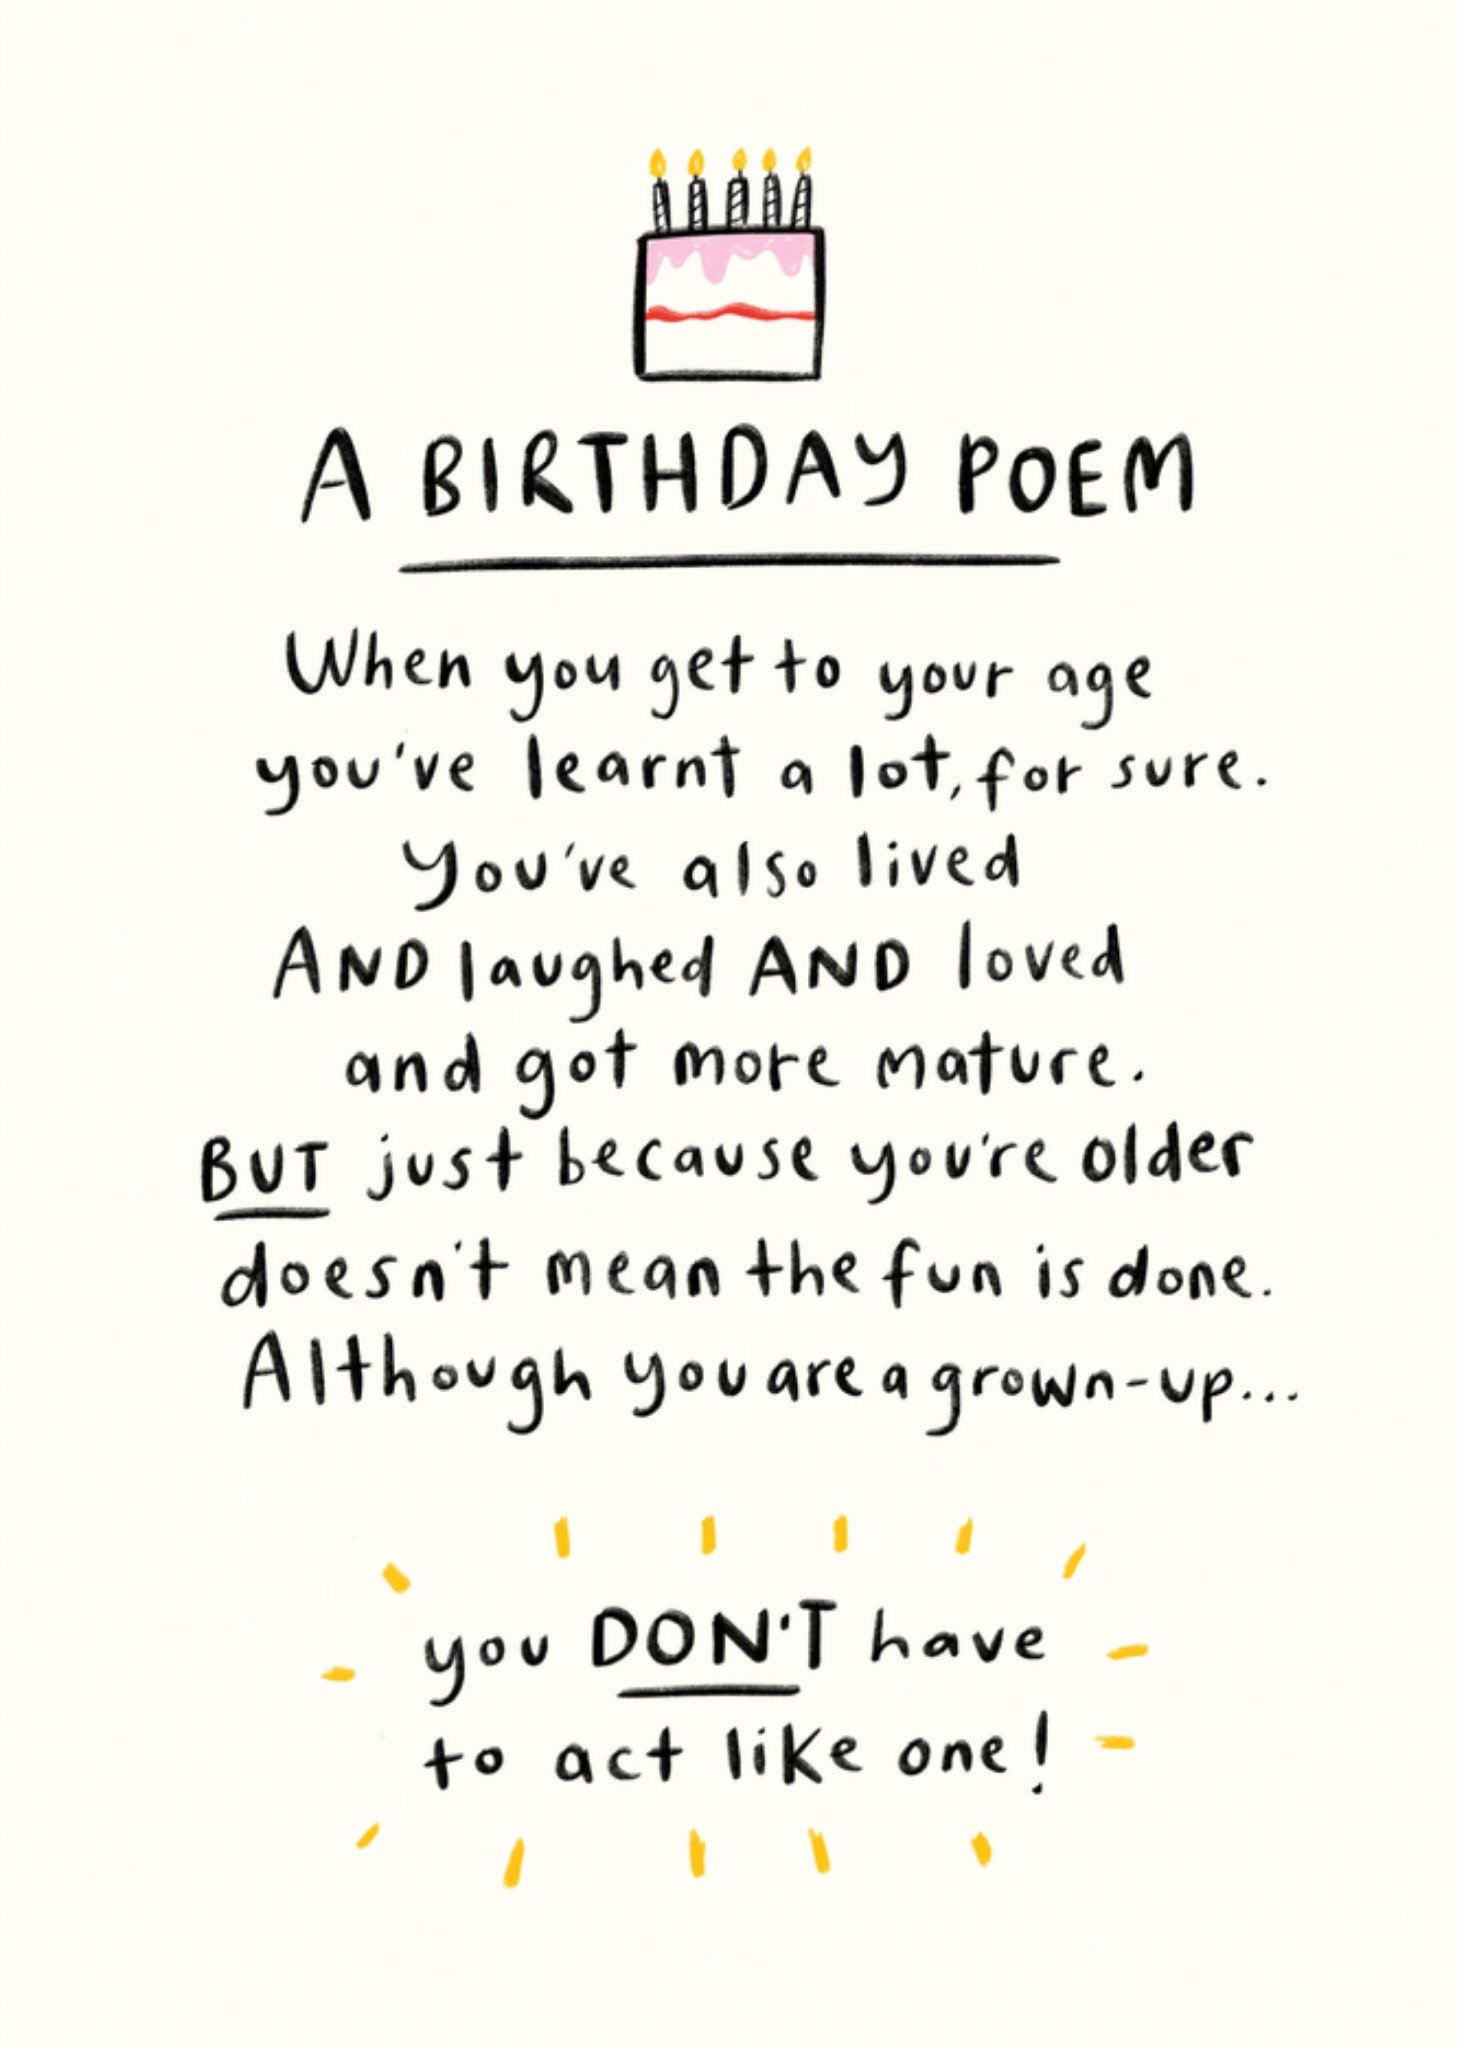 A BIRTHDAY POEM
When you get to your age
you've learnt a lot, for sure.
You've also lived
AND laughed AND loved
and got more mature.
BUT just because you're older
doesn't mean the fun is done.
Although you are a grown-up...
you DON'T have
to act like one!